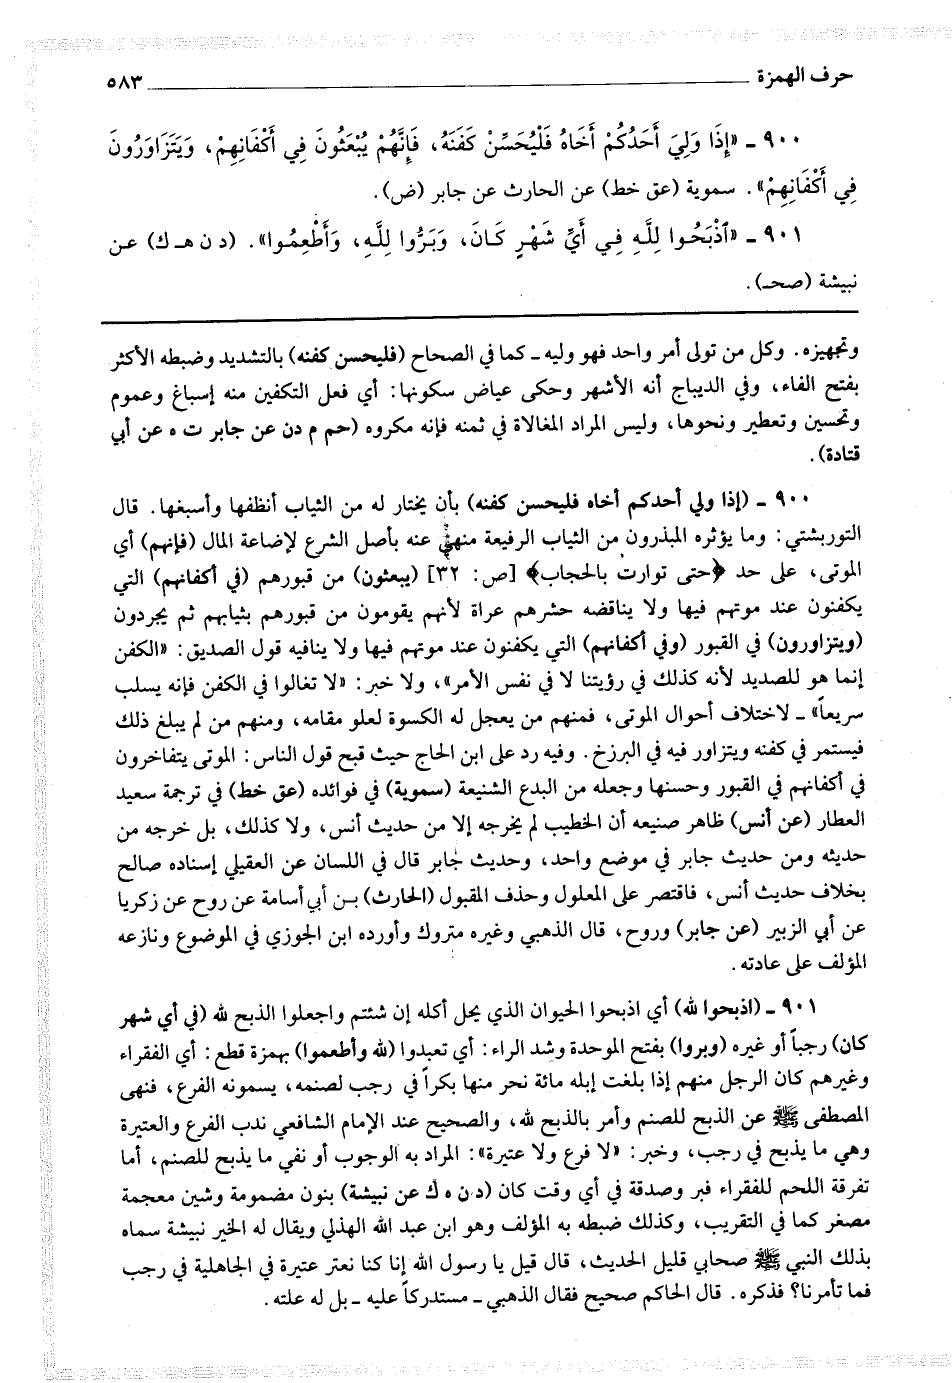 حرف الهمزة ٥٨٣
٩٠٠ ـ «إِذَا وَلِيَ أَحَدُكُمْ أَخَاهُ فَلْيُحَسِّنْ كَفَنَهُ، فَإِنَّهُمْ يُبْعَثُونَ فِي أَكْفَانِهِمْ، وَيَتَزَاوَرُونَ
فِي أَكْفَانِهِمْ». سموية (عق خط) عن الحارث عن جابر (ض).
٩٠١ ـ «ٱذْبَحُوا لِلَّهِ فِي أَيِّ شَهْرٍ كَانَ، وَبَرُّوا لِلَّهِ، وَأَطْعِمُوا». (د ن هـ ك) عن
نبيشة (صحـ).
وتجهيزه. وكل من تولى أمر واحد فهو وليه ـ كما في الصحاح (فليحسن كفنه) بالتشديد وضبطه الأكثر
بفتح الفاء، وفي الديباج أنه الأشهر وحكى عياض سكونها: أي فعل التكفين منه إسباغ وعموم
وتحسين وتعطير ونحوها، وليس المراد المغالاة في ثمنه فإنه مكروه (حم م دن عن جابر ت ه عن أبي
قتادة).
٩٠٠ ـ (إذا ولي أحدكم أخاه فليحسن كفنه) بأن يختار له من الثياب أنظفها وأسبغها. قال
التوربشتي: وما يؤثره المبذرون من الثياب الرفيعة منهيّ عنه بأصل الشرع لإضاعة المال (فإنهم) أي
الموتى، على حد ﴿حتى توارت بالحجاب﴾ [ص: ٣٢] (يبعثون) من قبورهم (في أكفانهم) التي
يكفنون عند موتهم فيها ولا يناقضه حشرهم عراة لأنهم يقومون من قبورهم بثيابهم ثم يجردون
(ويتزاورون) في القبور (وفي أكفانهم) التي يكفنون عند موتهم فيها ولا ينافيه قول الصديق: «الكفن
إنما هو للصديد لأنه كذلك في رؤيتنا لا في نفس الأمر»، ولا خبر: «لا تغالوا في الكفن فإنه يسلب
سريعاً» ـ لاختلاف أحوال الموتى، فمنهم من يعجل له الكسوة لعلو مقامه، ومنهم من لم يبلغ ذلك
فيستمر في كفنه ويتزاور فيه في البرزخ. وفيه رد على ابن الحاج حيث قبح قول الناس: الموتى يتفاخرون
في أكفانهم في القبور وحسنها وجعله من البدع الشنيعة (سموية) في فوائده (عق خط) في ترجمة سعيد
العطار (عن أنس) ظاهر صنيعه أن الخطيب لم يخرجه إلا من حديث أنس، ولا كذلك، بل خرجه من
حديثه ومن حديث جابر في موضع واحد، وحديث جابر قال في اللسان عن العقيلي إسناده صالح
بخلاف حديث أنس، فاقتصر على المعلول وحذف المقبول (الحارث) بن أبي أسامة عن روح عن زكريا
عن أبي الزبير (عن جابر) وروح، قال الذهبي وغيره متروك وأورده ابن الجوزي في الموضوع ونازعه
المؤلف على عادته.
٩٠١ ـ (اذبحوا لله) أي اذبحوا الحيوان الذي يحل أكله إن شئتم واجعلوا الذبح لله (في أي شهر
كان) رجباً أو غيره (وبروا) بفتح الموحدة وشد الراء: أي تعبدوا (لله وأطعموا) بهمزة قطع: أي الفقراء
وغيرهم كان الرجل منهم إذا بلغت إبله مائة نحر منها بكراً في رجب لصنمه، يسمونه الفرع، فنهى
المصطفى ﷺ عن الذبح للصنم وأمر بالذبح لله، والصحيح عند الإمام الشافعي ندب الفرع والعتيرة
وهي ما يذبح في رجب، وخبر: «لا فرع ولا عتيرة»: المراد به الوجوب أو نفي ما يذبح للصنم، أما
تفرقة اللحم للفقراء فبر وصدقة في أي وقت كان (د ن ه ك عن نبيشة) بنون مضمومة وشين معجمة
مصغر كما في التقريب، وكذلك ضبطه به المؤلف وهو ابن عبد الله الهذلي ويقال له الخير نبيشة سماه
بذلك النبي ﷺ صحابي قليل الحديث، قال قيل يا رسول الله إنا كنا نعتر عتيرة في الجاهلية في رجب
فما تأمرنا؟ فذكره. قال الحاكم صحيح فقال الذهبي ـ مستدركاً عليه ـ بل له علته.